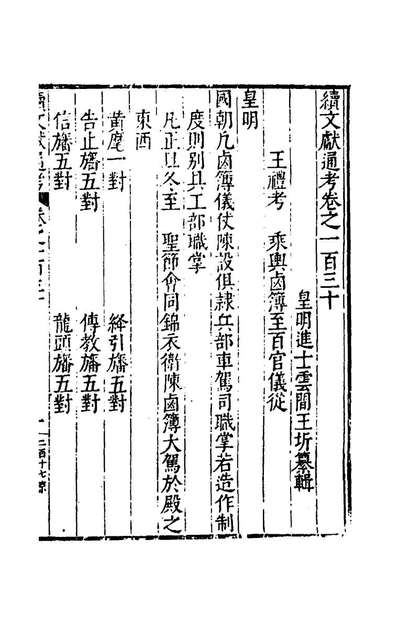 續文獻通考卷之一百三十
皇明進士雲間王圻纂輯
王禮考 乘輿鹵簿至百官儀從
皇明
國朝凡鹵簿儀仗陳設俱隷兵部車駕司職掌若造作制
度則別具工部職掌
凡正旦冬至 聖節會同錦衣衛陳鹵簿大駕於殿之
東西
黄麾一對 絳引旛五對
告止旛五對 傳教旛五對
信旛五對 龍頭旛五對
續文獻通考